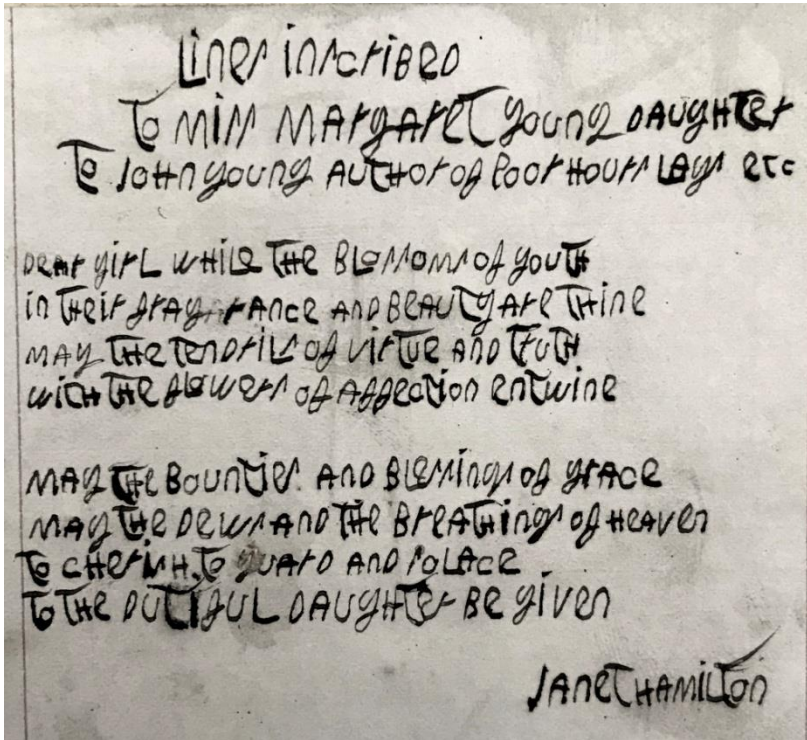 Lines inscribed
To Miss Margaret Young Daughter
To John Young Author of Poor Hours Lays etc
Dear girl while the Blossoms of youth
in their fragrance and Beauty are thine
may the tendrils of virtue and truth
with the flowers of affection entwine
may the Bounties and Blessings of grace
may the dews and the Breathings of Heaven
To cherish, To guard and solace
To the dutiful daughter Be given
Janet Hamilton